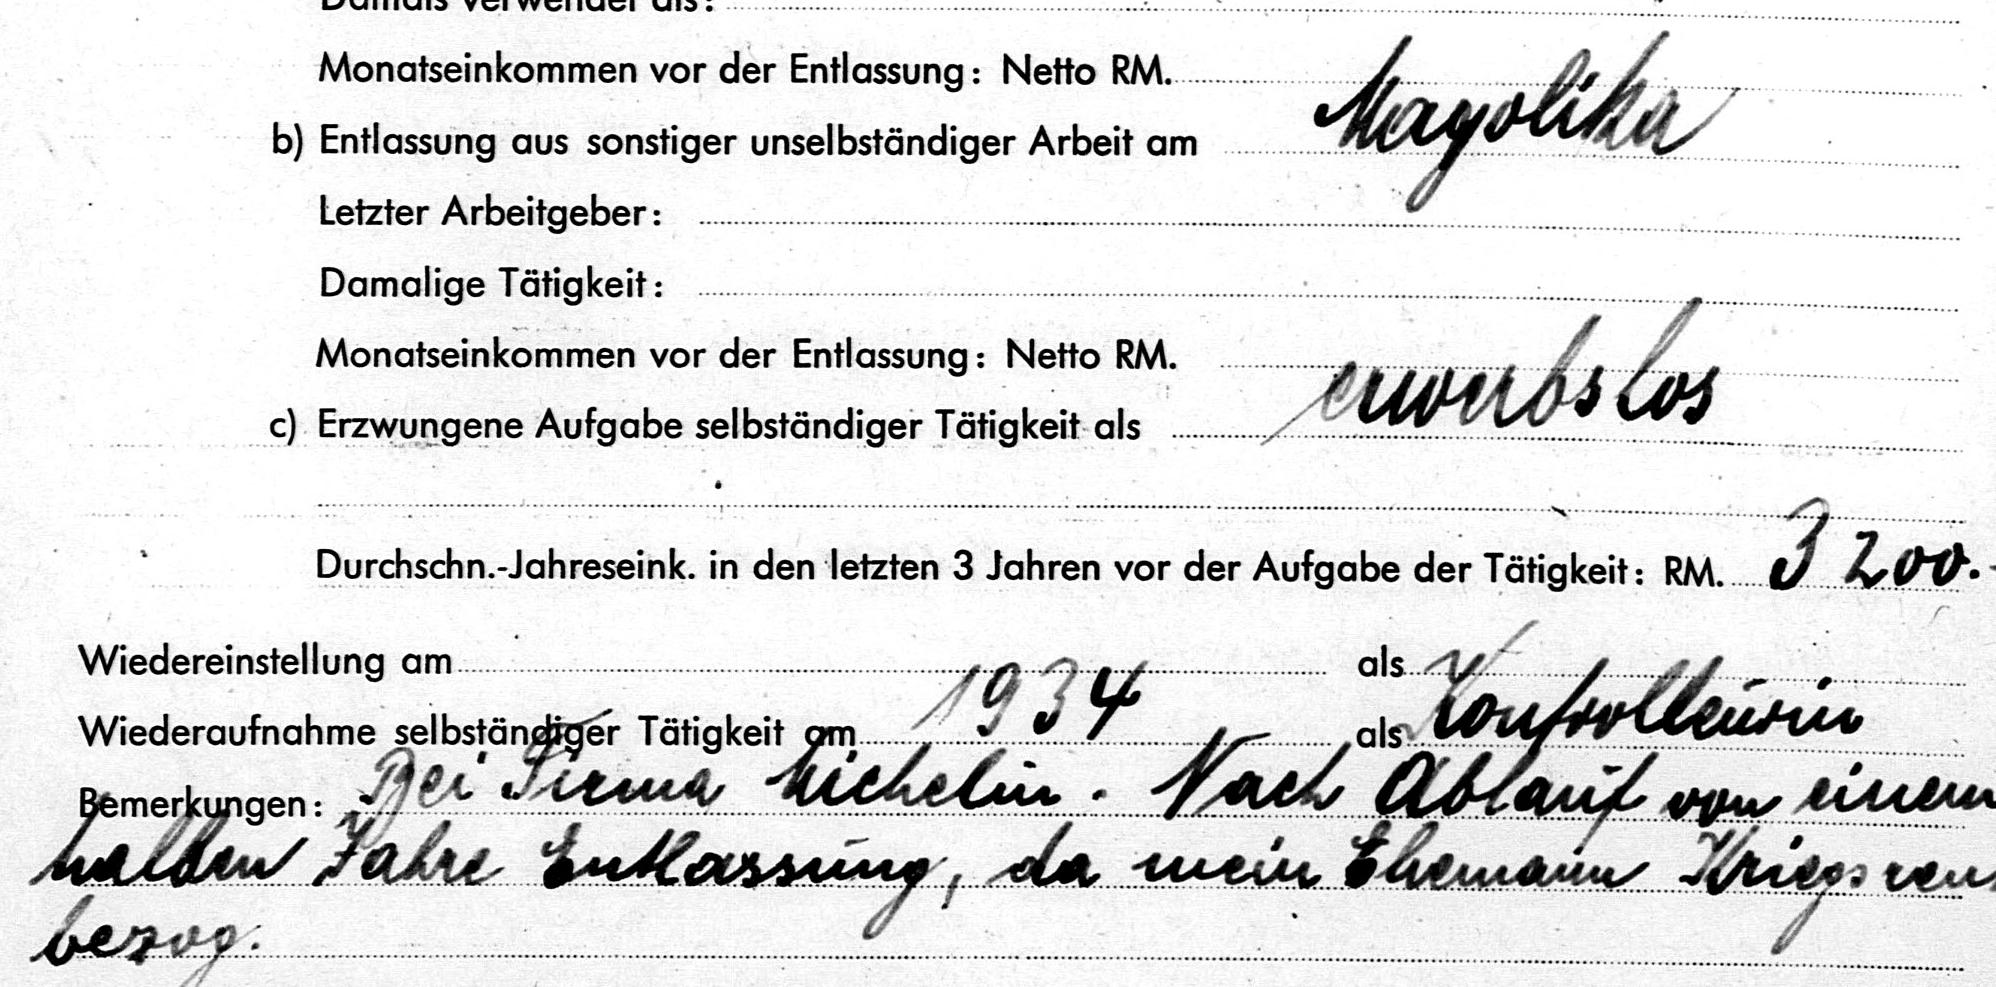 Damals verwendet als:
Monatseinkommen vor der Entlassung: Netto RM.
Magolika
b) Entlassung aus sonstiger unselbständiger Arbeit am
Letzter Arbeitgeber:
Damalige Tätigkeit:
Monatseinkommen vor der Entlassung: Netto RM.
erwerbslos
c) Erzwungene Aufgabe selbständiger Tätigkeit als
Durchschn.-Jahreseink. in den letzten 3 Jahren vor der Aufgabe der Tätigkeit: RM. 3200.-
Wiedereinstellung am als
Wiederaufnahme selbständiger Tätigkeit am 1934 als Kontrolleurin
Bemerkungen: Bei Firma Michelin. Nach Ablauf von einem
halben Jahre Entlassung, da mein Ehemann Kriegsren
bezog.